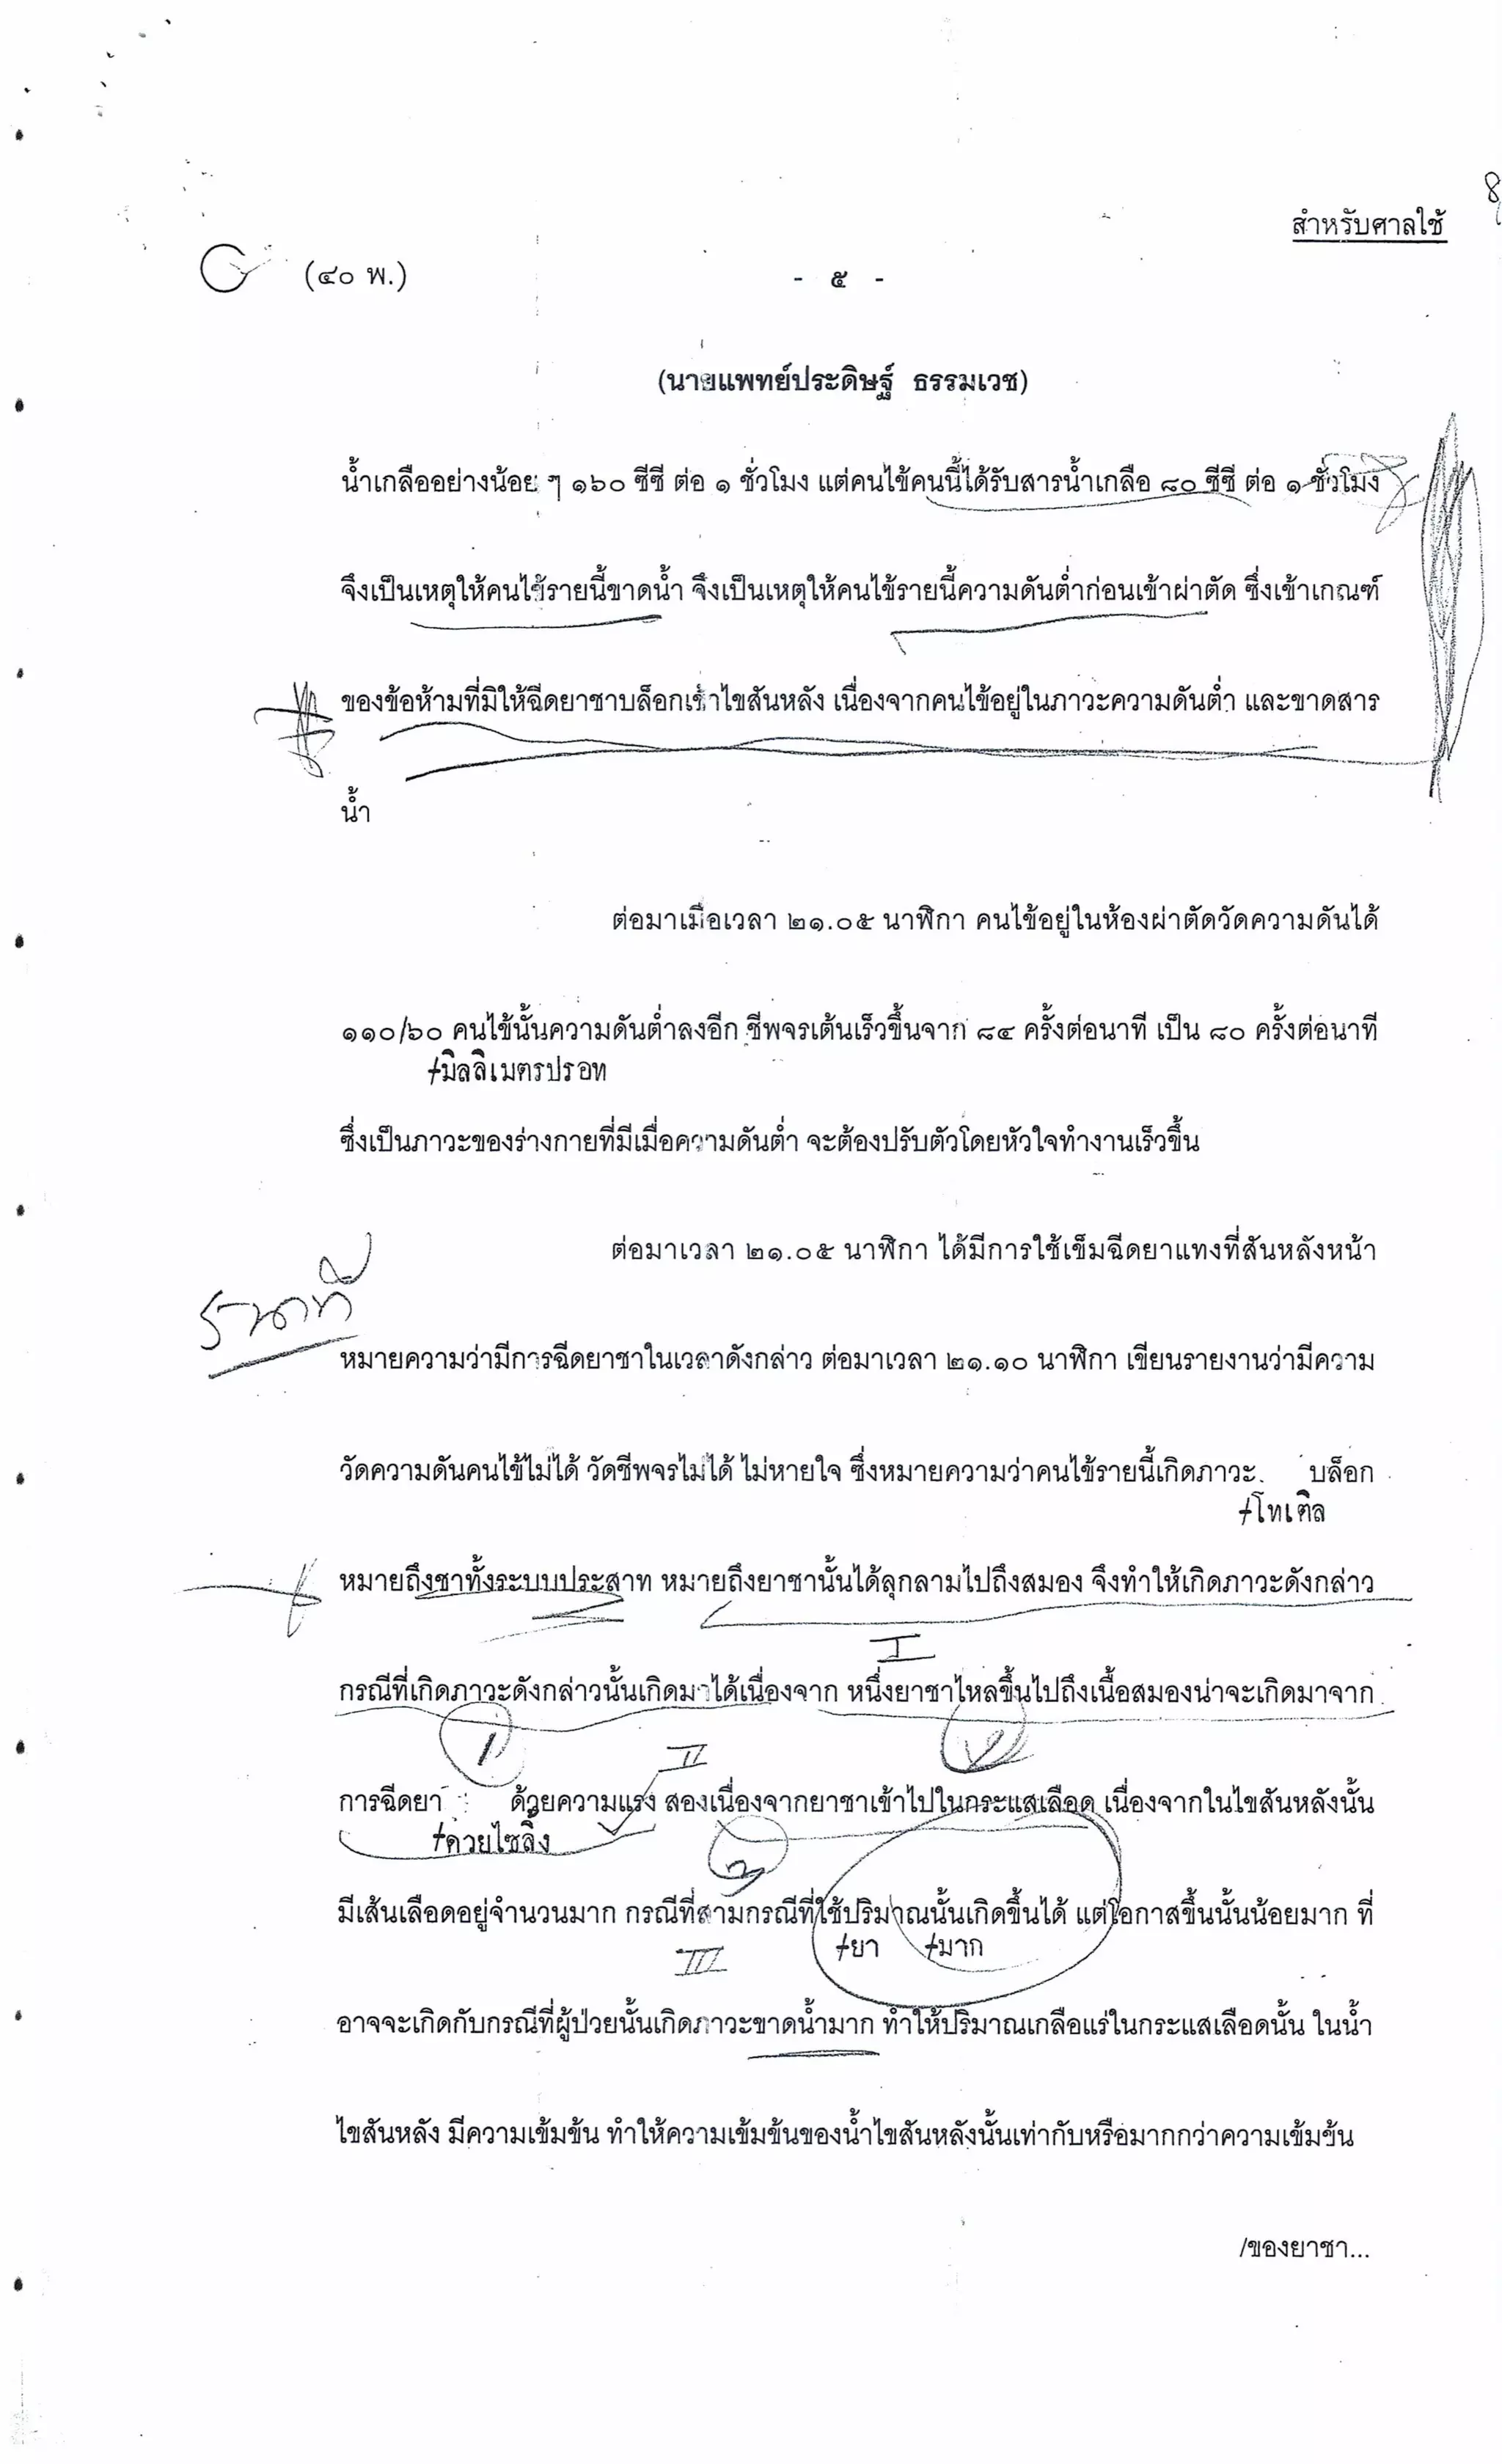 สำหรับศาลใช้
(๔๐ พ.) - ๕ -
(นายแพทย์ประดิษฐ์ ธรรมเวช)
น้ำเกลืออย่างน้อย ๆ ๑๖๐ ซีซี ต่อ ๑ ชั่วโมง แต่คนไข้คนนี้ได้รับสารน้ำเกลือ ๘๐ ซีซี ต่อ ๑ ชั่วโมง
จึงเป็นเหตุให้คนไข้รายนี้ขาดน้ำ จึงเป็นเหตุให้คนไข้รายนี้ความดันต่ำก่อนเข้าผ่าตัด ซึ่งเข้าเกณฑ์
ของข้อห้ามที่มิให้ฉีดยาชาบล็อกเข้าไขสันหลัง เนื่องจากคนไข้อยู่ในภาวะความดันต่ำ และขาดสาร
น้ำ
ต่อมาเมื่อเวลา ๒๑.๐๕ นาฬิกา คนไข้อยู่ในห้องผ่าตัดวัดความดันได้
๑๑๐/๖๐ คนไข้นั้นความดันต่ำลงอีก ชีพจรเต้นเร็วขึ้นจาก ๘๔ ครั้งต่อนาที เป็น ๘๐ ครั้งต่อนาที
+มิลลิเมตรปรอท
ซึ่งเป็นภาวะของร่างกายที่มีเมื่อความดันต่ำ จะต้องปรับตัวโดยหัวใจทำงานเร็วขึ้น
ต่อมาเวลา ๒๑.๐๕ นาฬิกา ได้มีการใช้เข็มฉีดยาแทงที่สันหลังหน้า
5 นาที
หมายความว่ามีการฉีดยาชาในเวลาดังกล่าว ต่อมาเวลา ๒๑.๑๐ นาฬิกา เขียนรายงานว่ามีความ
วัดความดันคนไข้ไม่ได้ วัดชีพจรไม่ได้ ไม่หายใจ ซึ่งหมายความว่าคนไข้รายนี้เกิดภาวะ บล็อก
+โทเติล
หมายถึงชาทั้งระบบประสาท หมายถึงยาชานั้นได้ลุกลามไปถึงสมอง จึงทำให้เกิดภาวะดังกล่าว
I
กรณีที่เกิดภาวะดังกล่าวนั้นเกิดมาได้เนื่องจาก หนึ่งยาชาไหลขึ้นไปถึงเนื้อสมองน่าจะเกิดมาจาก
1 II
การฉีดยา ด้วยความแรง สองเนื่องจากยาชาเข้าไปในกระแสเลือด เนื่องจากในไขสันหลังนั้น
+ควยไซลิ้ง
มีเส้นเลือดอยู่จำนวนมาก กรณีที่สามกรณีที่ใช้ปริมาณนั้นเกิดขึ้นได้ แต่โอกาสขึ้นนั้นน้อยมาก ที่
III +ยา +มาก
อาจจะเกิดกับกรณีที่ผู้ป่วยนั้นเกิดภาวะขาดน้ำมาก ทำให้ปริมาณเกลือแร่ในกระแสเลือดนั้น ในน้ำ
ไขสันหลัง มีความเข้มข้น ทำให้ความเข้มข้นของน้ำไขสันหลังนั้นเท่ากับหรือมากกว่าความเข้มข้น
/ของยาชา...